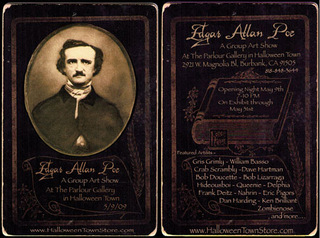 Edgar Allan Poe
A Group Art Show
At The Parlour Gallery
in Halloween Town
5/9/09
www.HalloweenTownStore.com
Edgar Allan Poe
A Group Art Show
At The Parlour Gallery in Halloween Town
2921 W. Magnolia Bl. Burbank, CA 91505
Opening Night May 9th
7-10 PM
On Exhibit through
May 31st
Featured Artists -
Cris Grimly - William Basso
Crab Scrambly - Dave Hartman
Bob Doucette - Bob Lizarraga
Hideousboi - Queenie - Delphia
Frank Deitz - Nahrin - Eric Pigors
Dan Harding - Ken Brilliant
Zombienose
...and more...
www.HalloweenTownStore.com